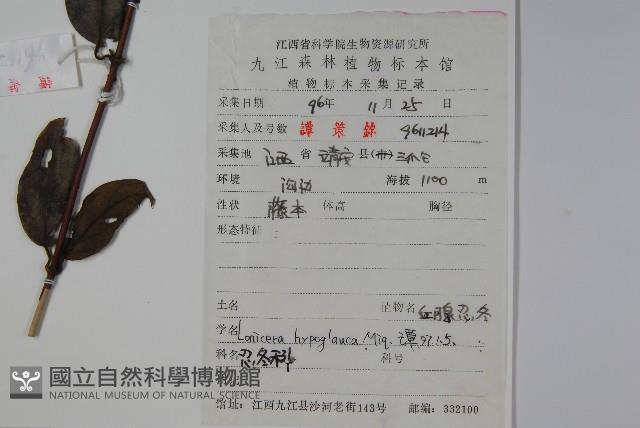 江西省科学院生物资源研究所
九江森林植物标本馆
植物标本采集记录
采集日期 96年 11月 25日
采集人及号数 譚策銘 9611214
采集地 江西 省 靖安 县(市) 三爪仑
环境 沟边 海拔 1100 m
性状 藤本 体高 胸径
形态特征
土名 植物名 红腺忍冬
学名 Lonicera hypoglauca Miq. 谭97.1.5.
科名 忍冬科 科号
國立自然科學博物館
NATIONAL MUSEUM OF NATURAL SCIENCE
馆址:江西九江县沙河老街143号 邮编:332100